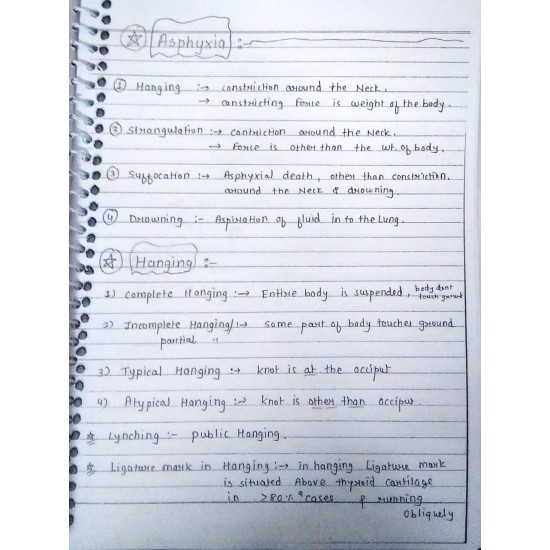 ☆ Asphyxia :-
① Hanging :→ constriction around the Neck.
→ constricting Force is weight of the body.
② Strangulation :→ contriction around the Neck.
→ Force is other than the wt. of body.
③ Suffocation :→ Asphyxial death, other than constriction.
around the Neck & drowning.
④ Drowning :- Aspiration of fluid in to the Lung.
☆ Hanging :-
1) Complete Hanging :→ Entire body is suspended, body dont
touch ground
2) Incomplete Hanging/:→ some part of body touches ground
partial "
3) Typical Hanging :→ knot is at the occiput
4) Atypical Hanging :→ knot is other than occipur.
☆ Lynching :- public Hanging.
☆ Ligature mark in Hanging :→ in hanging Ligature mark
is situated Above thyroid cartilage
in >80% cases & running
obliquely